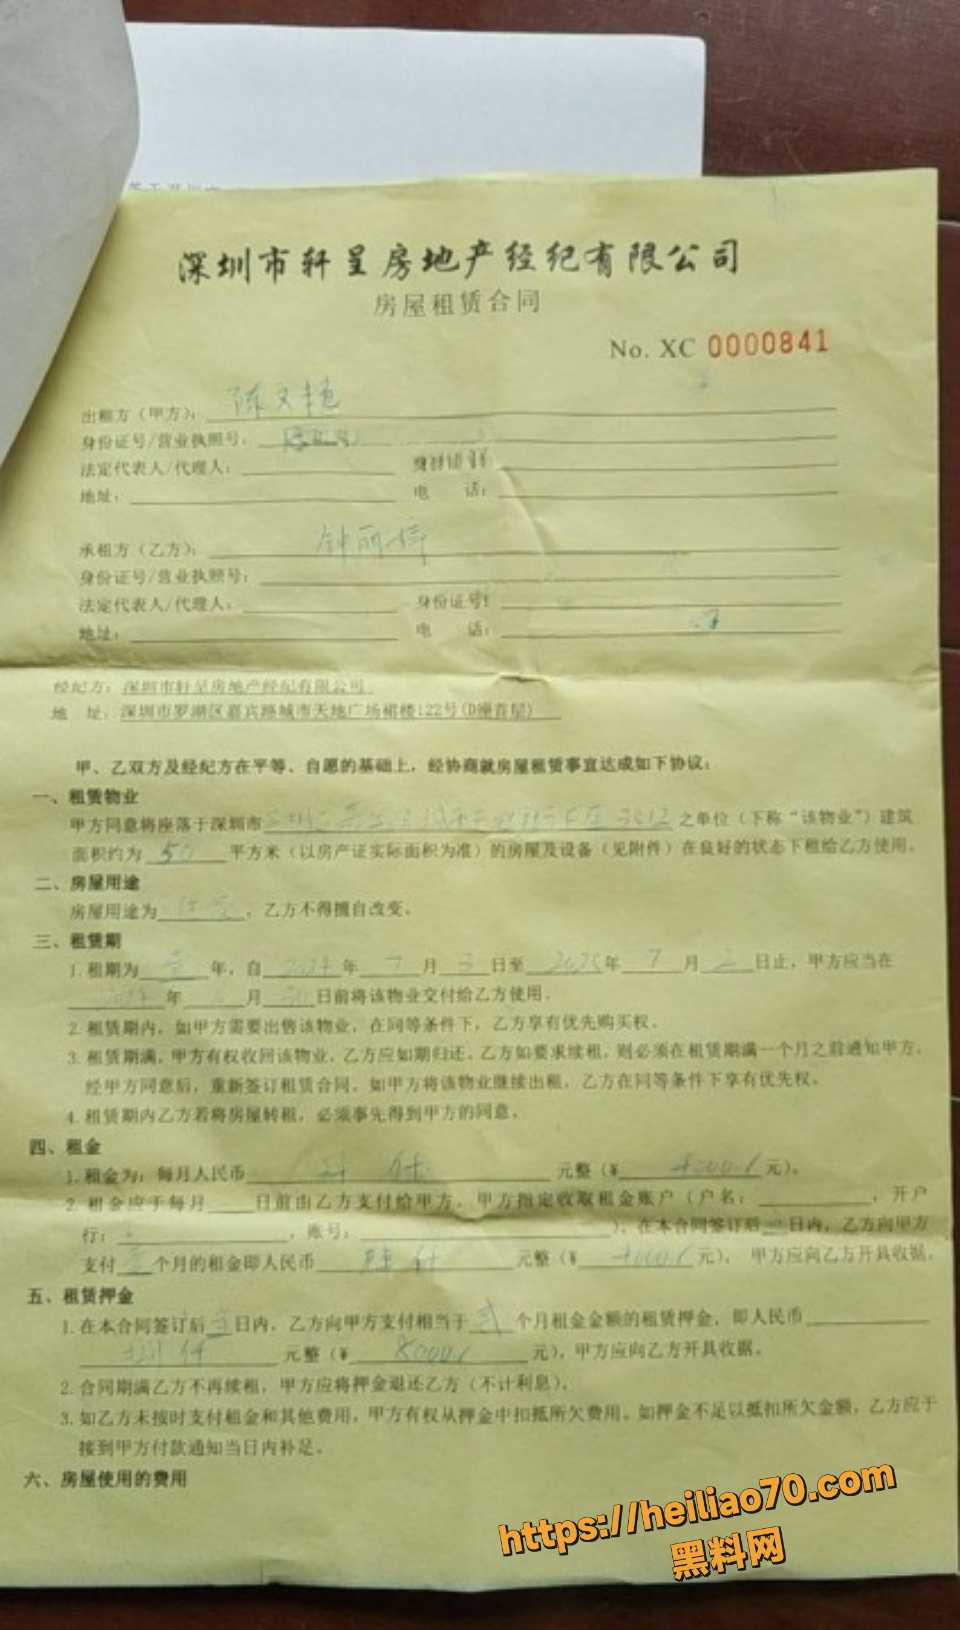 深圳市轩呈房地产经纪有限公司
房屋租赁合同
No. XC 0000841
出租方（甲方）：陈文艳
身份证号/营业执照号：
法定代表人/代理人： 身份证号：
地址： 电 话：
承租方（乙方）：钟丽
身份证号/营业执照号：
法定代表人/代理人： 身份证号：
地址： 电 话：
经纪方：深圳市轩呈房地产经纪有限公司
地 址：深圳市罗湖区嘉宾路城市天地广场裙楼122号(D栋首层)
甲、乙双方及经纪方在平等、自愿的基础上，经协商就房屋租赁事宜达成如下协议：
一、租赁物业
甲方同意将座落于深圳市 3012 之单位（下称“该物业”）建筑
面积约为 50 平方米（以房产证实际面积为准）的房屋及设备（见附件）在良好的状态下租给乙方使用。
二、房屋用途
房屋用途为 ，乙方不得擅自改变。
三、租赁期
1.租期为 年，自 2024 年 7 月 3 日至 2025 年 7 月 2 日止，甲方应当在
2024 年 月 30 日前将该物业交付给乙方使用。
2.租赁期内，如甲方需要出售该物业，在同等条件下，乙方享有优先购买权。
3.租赁期满，甲方有权收回该物业，乙方应如期归还。乙方如要求续租，则必须在租赁期满一个月之前通知甲方，
经甲方同意后，重新签订租赁合同。如甲方将该物业继续出租，乙方在同等条件下享有优先权。
4.租赁期内乙方若将房屋转租，必须事先得到甲方的同意。
四、租金
1.租金为：每月人民币 肆仟 元整（￥ 4000.1 元）。
2.租金应于每月 日前由乙方支付给甲方，甲方指定收取租金账户（户名： ，开户
行： ，账号： ），在本合同签订后 日内，乙方向甲方
支付 个月的租金即人民币 肆仟 元整（￥ 4000.1 元），甲方应向乙方开具收据。
五、租赁押金
1.在本合同签订后 日内，乙方向甲方支付相当于 贰 个月租金金额的租赁押金，即人民币
捌仟 元整（￥ 8000.1 元），甲方应向乙方开具收据。
2.合同期满乙方不再续租，甲方应将押金退还乙方（不计利息）。
3.如乙方未按时支付租金和其他费用，甲方有权从押金中扣抵所欠费用。如押金不足以抵扣所欠金额，乙方应于
接到甲方付款通知当日内补足。
六、房屋使用的费用
https://heiliao70.com
黑料网